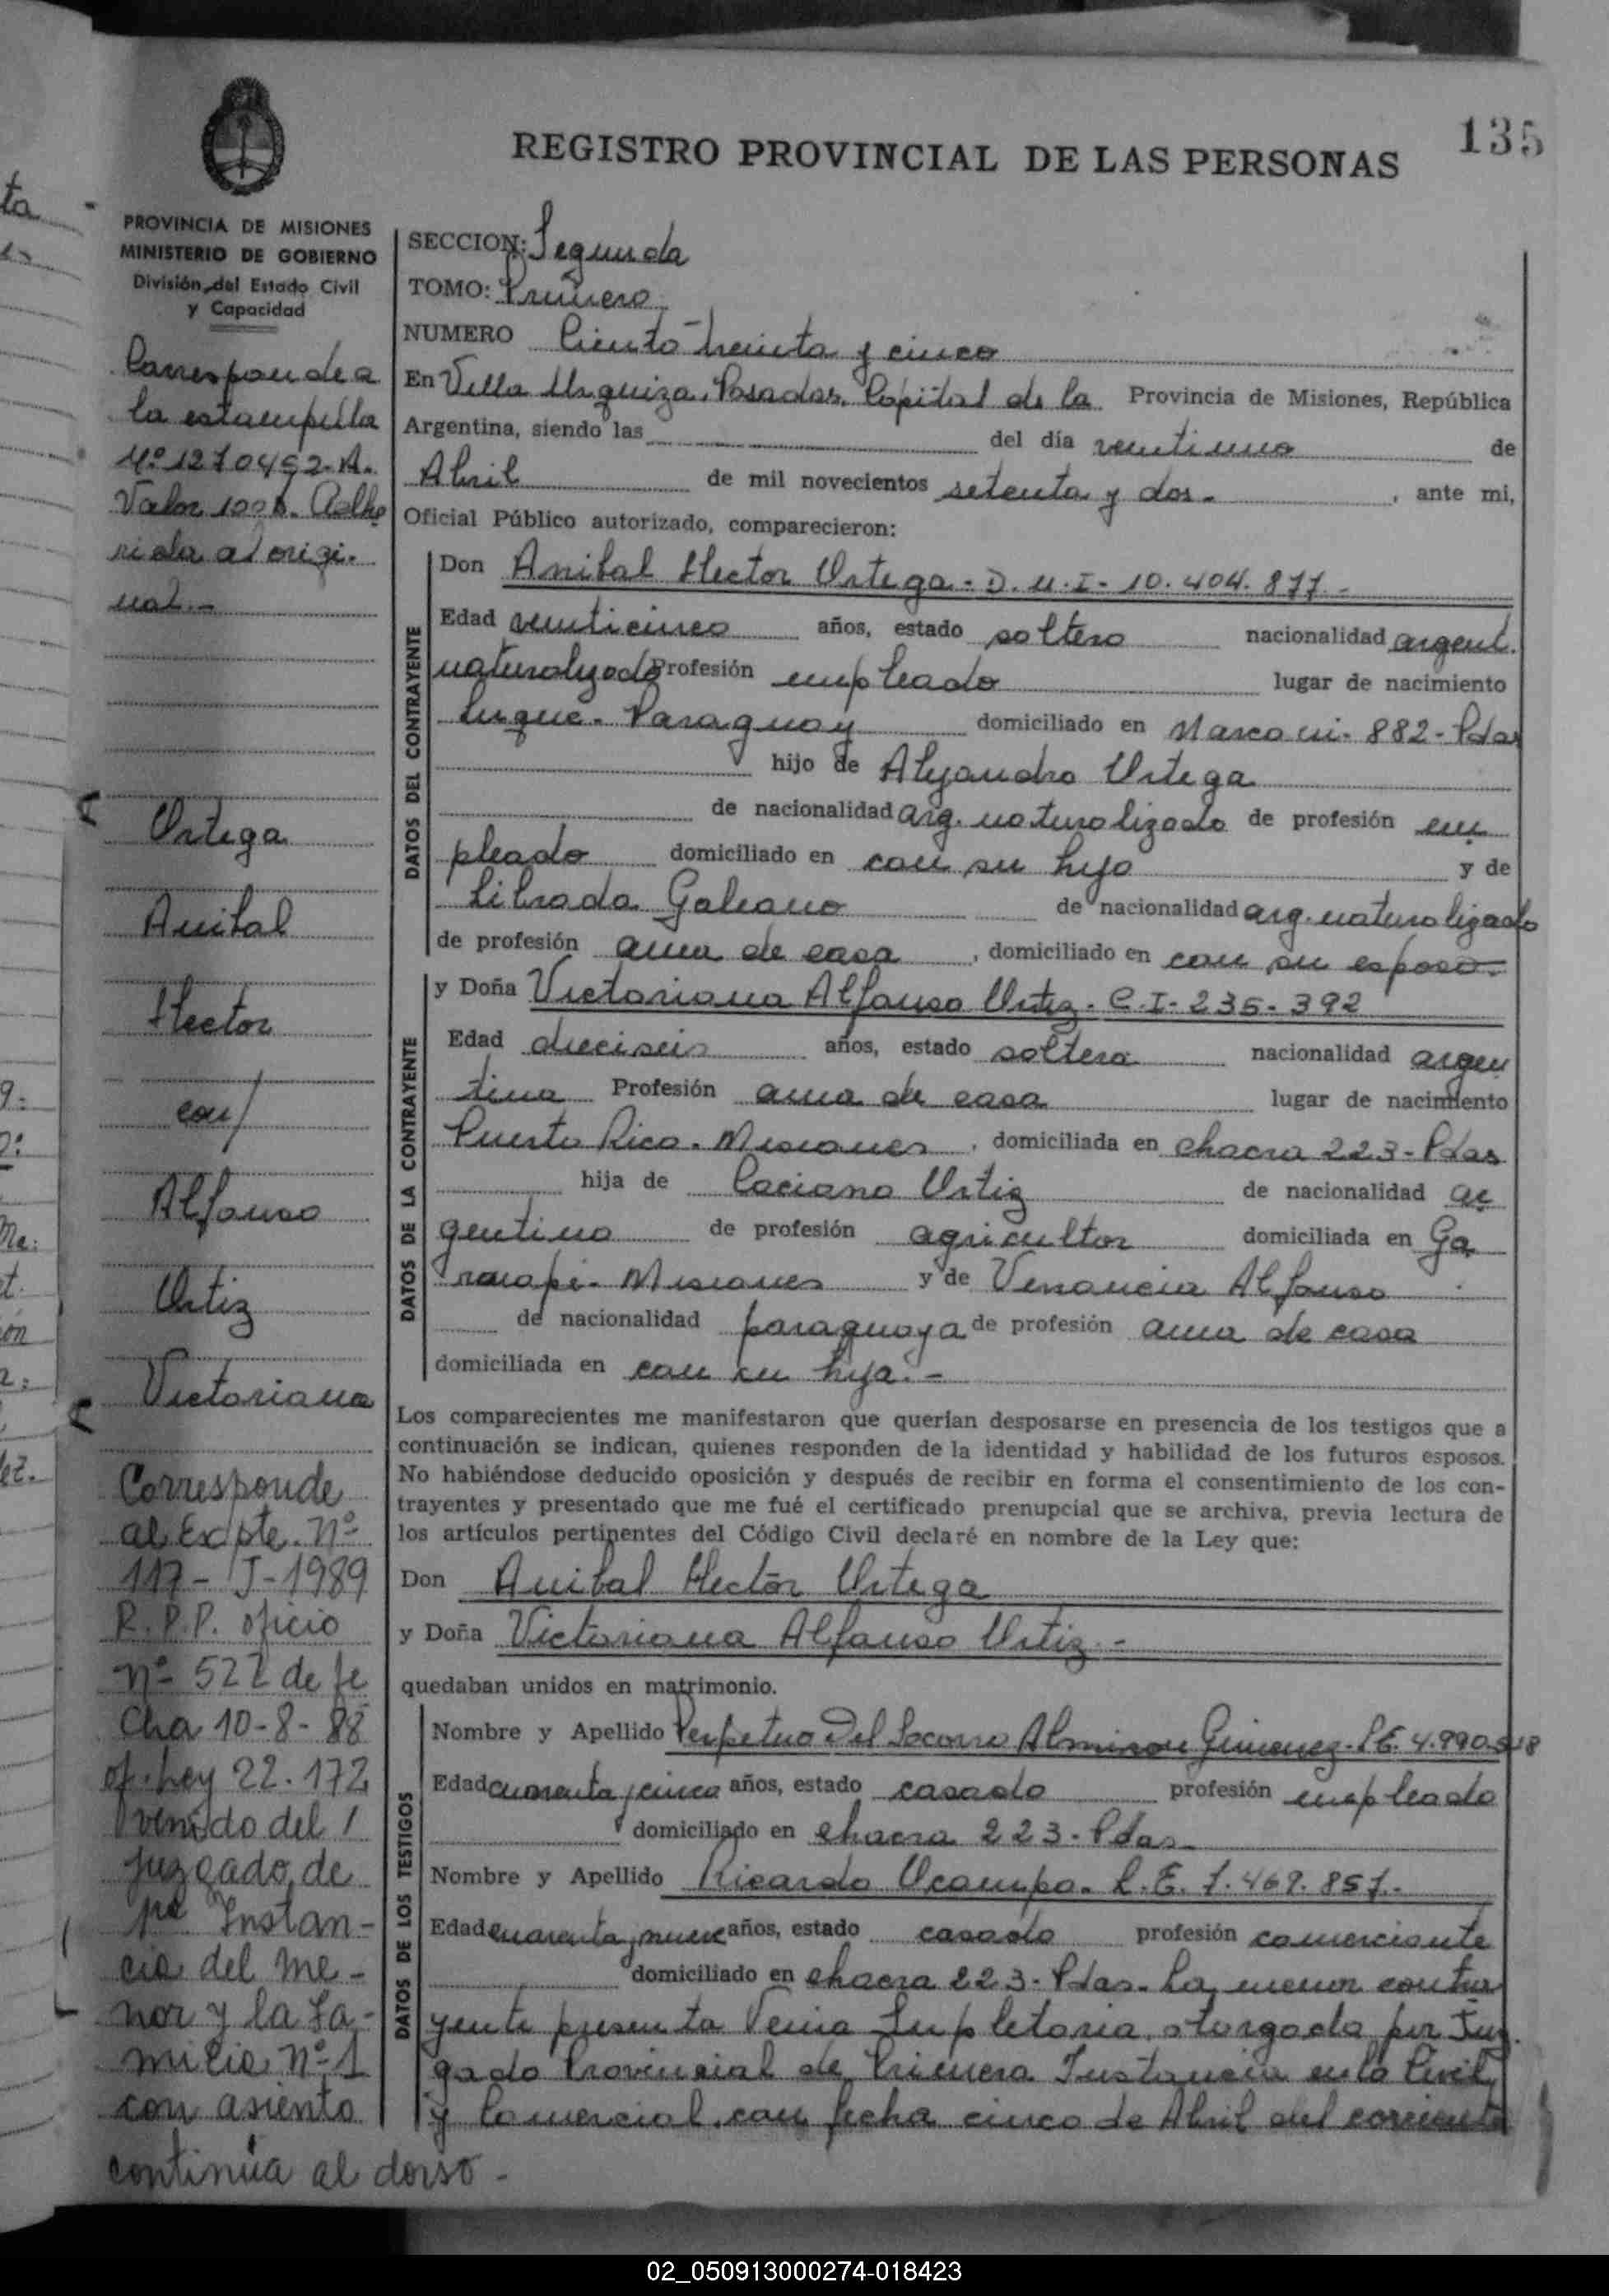 135
REGISTRO PROVINCIAL DE LAS PERSONAS
PROVINCIA DE MISIONES
MINISTERIO DE GOBIERNO
División del Estado Civil
y Capacidad
Corresponde a
la estampilla
Nº 1270452-A.
Valor 100$. Adhe
rida al origi-
nal.-
Ortega
Anibal
Hector
con/
Alfonso
Ortiz
Victoriana
Corresponde
al Expte. Nº
117-J-1989
R.P.P. oficio
nº 522 de fe
cha 10-8-88
of. Ley 22.172
venido del
juzgado de
1ra Instan-
cia del me-
nor y la Fa-
milia nº 1
con asiento
continúa al dorso -
SECCION: Segunda
TOMO: Primero
NUMERO Ciento treinta y cinco
En Villa Urquiza, Posadas, Capital de la Provincia de Misiones, República
Argentina, siendo las del día veintiuno de
Abril de mil novecientos setenta y dos.- , ante mi,
Oficial Público autorizado, comparecieron:
DATOS DEL CONTRAYENTE
Don Anibal Hector Ortega - D.N.I- 10.404.877.-
Edad veinticinco años, estado soltero nacionalidad argent.
naturalizado Profesión empleado lugar de nacimiento
Luque- Paraguay domiciliado en Marconi- 882- Pdas
hijo de Alejandro Ortega
de nacionalidad arg. naturalizado de profesión em
pleado domiciliado en con su hijo y de
Librada Galeano de nacionalidad arg. naturalizado
de profesión ama de casa , domiciliado en con su esposo.-
DATOS DE LA CONTRAYENTE
y Doña Victoriana Alfonso Ortiz- C.I- 235-392
Edad dieciseis años, estado soltera nacionalidad argen
tina Profesión ama de casa lugar de nacimiento
Puerto Rico- Misiones , domiciliada en chacra 223- Pdas
hija de Paciano Ortiz de nacionalidad ar
gentino de profesión agricultor domiciliada en Ga
ruapé- Misiones y de Venancia Alfonso
de nacionalidad paraguaya de profesión ama de casa
domiciliada en con su hija.-
Los comparecientes me manifestaron que querían desposarse en presencia de los testigos que a
continuación se indican, quienes responden de la identidad y habilidad de los futuros esposos.
No habiéndose deducido oposición y después de recibir en forma el consentimiento de los con-
trayentes y presentado que me fué el certificado prenupcial que se archiva, previa lectura de
los artículos pertinentes del Código Civil declaré en nombre de la Ley que:
Don Anibal Hector Ortega
y Doña Victoriana Alfonso Ortiz.-
quedaban unidos en matrimonio.
DATOS DE LOS TESTIGOS
Nombre y Apellido Perpetuo Del Socorro Almiron Gimenez-
Edad cuarenta y cinco años, estado casado profesión empleado
domiciliado en chacra 223- Pdas
Nombre y Apellido Ricardo Ocampo- L.E. 7.469.857.-
Edad cuarenta y nueve años, estado casado profesión comerciante
domiciliado en chacra 223- Pdas- La menor contra
yente presenta Venia Supletoria, otorgada por Juz
gado Provincial de Primera Instancia en lo Civil
y Comercial, con fecha cinco de Abril del corriente
02_050913000274-018423